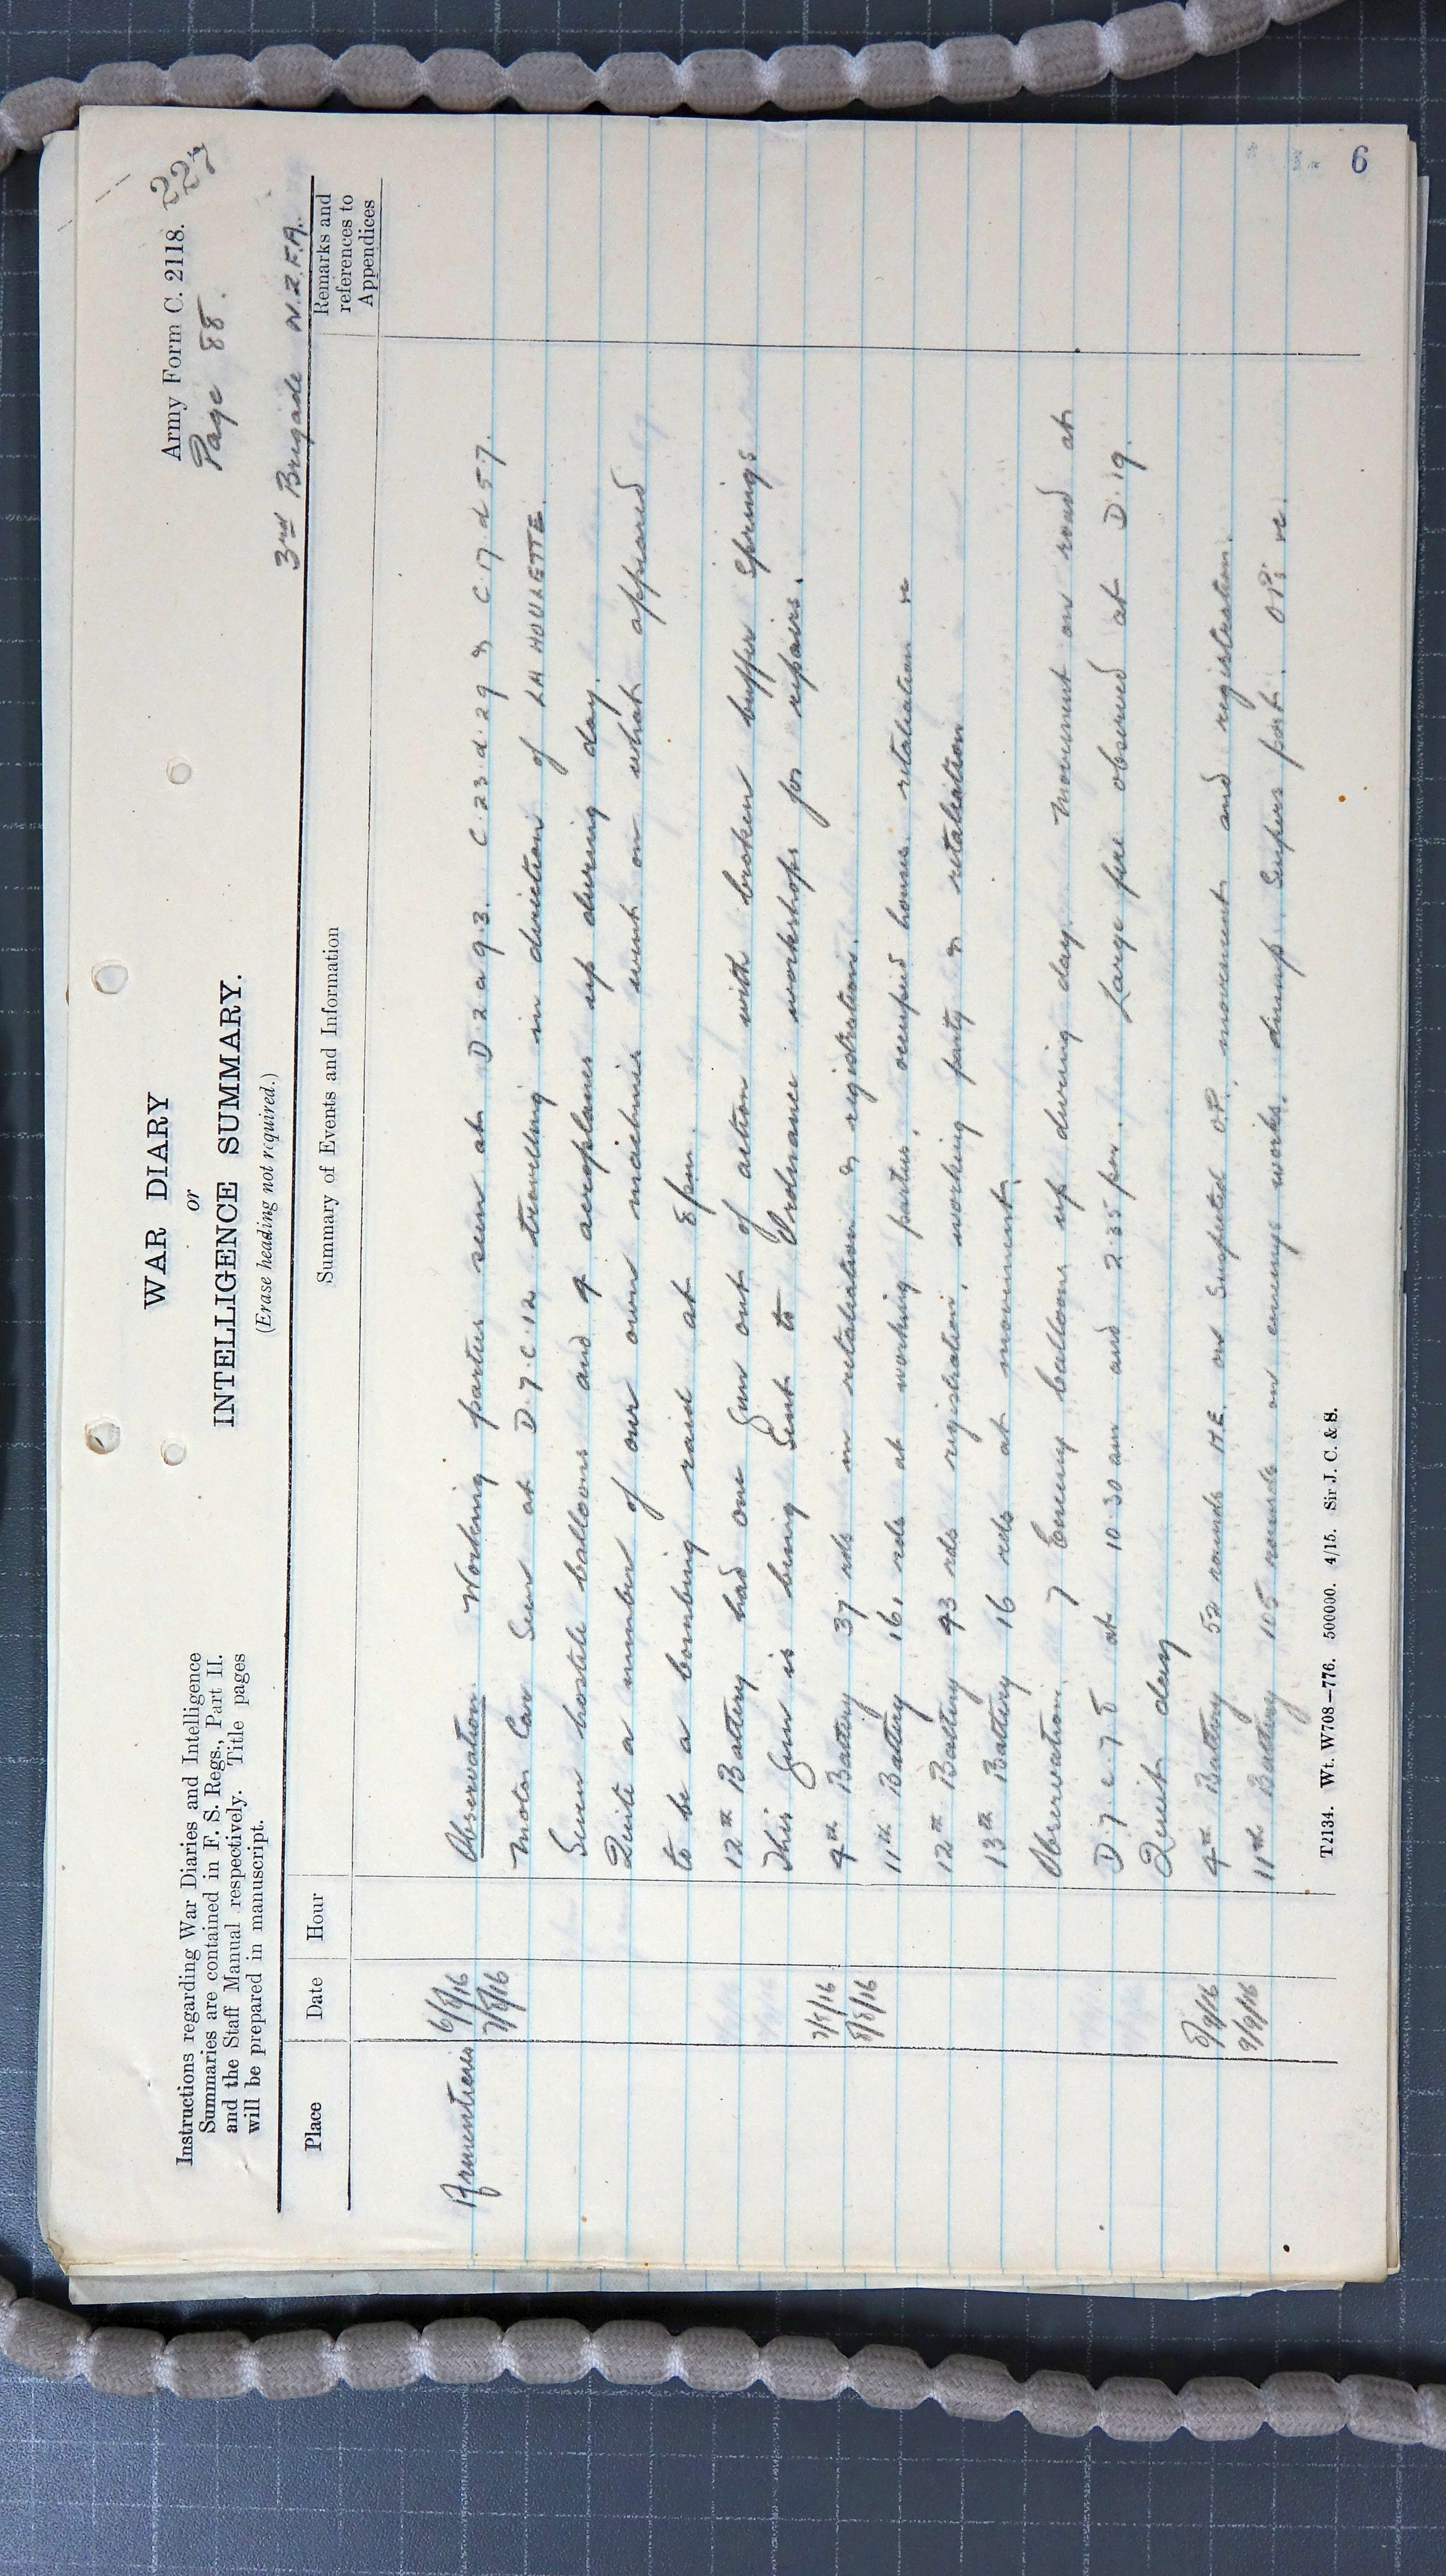 Army Form C. 2118.
227
Page 88.
WAR DIARY
or
INTELLIGENCE SUMMARY.
(Erase heading not required.)
3rd Brigade N.Z.F.A.
Instructions regarding War Diaries and Intelligence
Summaries are contained in F. S. Regs., Part II.
and the Staff Manual respectively. Title pages
will be prepared in manuscript.
Place
Date
Hour
Summary of Events and Information
Remarks and
references to
Appendices
Armentieres 6/8/16 Observation. Working parties seen at D 2 a 9.3. C.23.d.29 & C.17.d 5.7.
7/8/16 Motor Car Seen at D.7.C.12 travelling in direction of LA HOULETTE.
Seven hostile balloons and 4 aeroplanes up during day.
Quite a number of our own machines went on what appeared
to be a bombing raid at 8pm.
12th Battery had one Gun out of action with broken buffer springs
This Gun is being Sent to Ordnance workshops for repairs.
7/8/16 4th Battery 37 rds in retaliation & registration.
8/8/16 11th Battery 161 rds at working parties, occupied houses, retaliation
12th Battery 43 rds registration, working party & retaliation
13th Battery 16 rds at movement.
Observation. 7 Enemy balloons up during day. Movement on road at
D.7.c.78 at 10.30 am and 2.35 pm. Large fire observed at D.19.
Quiet day
8/8/16 4th Battery 52 rounds H.E. on Suspected O.P., movement and registration.
9/8/16 11th Battery 105 rounds on enemys works, dump, Snipers post, OPs
T2134. Wt. W708—776. 500000. 4/15. Sir J. C. & S.
6